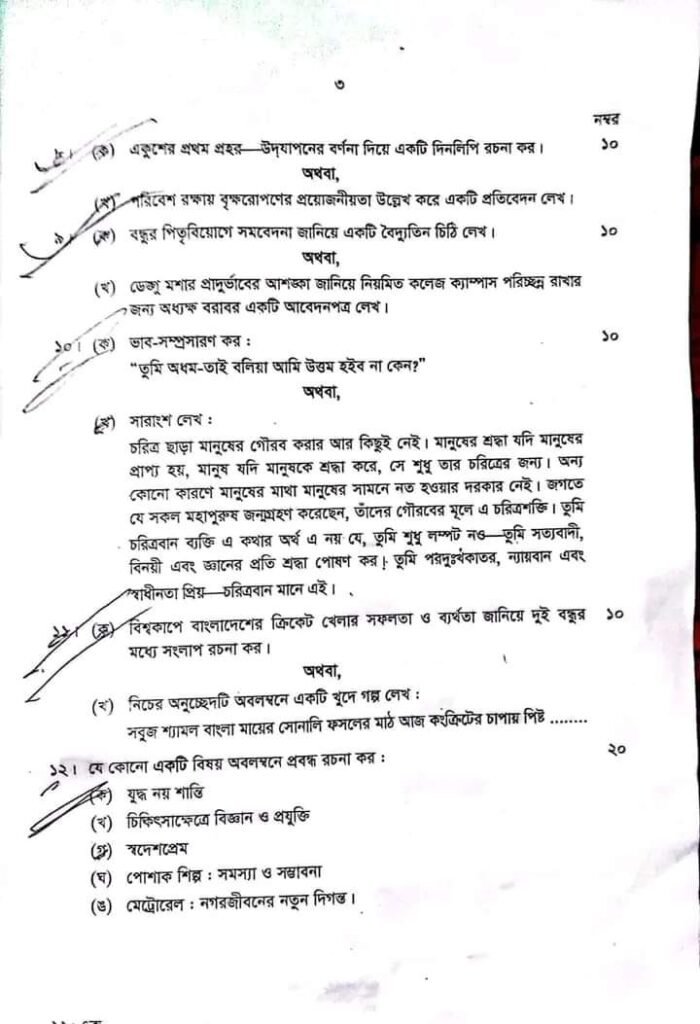 ৩
নম্বর
(ক) একুশের প্রথম প্রহর—উদ্‌যাপনের বর্ণনা দিয়ে একটি দিনলিপি রচনা কর। ১০
অথবা,
(খ) পরিবেশ রক্ষায় বৃক্ষরোপণের প্রয়োজনীয়তা উল্লেখ করে একটি প্রতিবেদন লেখ।
৯। (ক) বন্ধুর পিতৃবিয়োগে সমবেদনা জানিয়ে একটি বৈদ্যুতিন চিঠি লেখ। ১০
অথবা,
(খ) ডেঙ্গু মশার প্রাদুর্ভাবের আশঙ্কা জানিয়ে নিয়মিত কলেজ ক্যাম্পাস পরিচ্ছন্ন রাখার
জন্য অধ্যক্ষ বরাবর একটি আবেদনপত্র লেখ।
১০। (ক) ভাব-সম্প্রসারণ কর : ১০
“তুমি অধম-তাই বলিয়া আমি উত্তম হইব না কেন?”
অথবা,
(খ) সারাংশ লেখ :
চরিত্র ছাড়া মানুষের গৌরব করার আর কিছুই নেই। মানুষের শ্রদ্ধা যদি মানুষের
প্রাপ্য হয়, মানুষ যদি মানুষকে শ্রদ্ধা করে, সে শুধু তার চরিত্রের জন্য। অন্য
কোনো কারণে মানুষের মাথা মানুষের সামনে নত হওয়ার দরকার নেই। জগতে
যে সকল মহাপুরুষ জন্মগ্রহণ করেছেন, তাঁদের গৌরবের মূলে এ চরিত্রশক্তি। তুমি
চরিত্রবান ব্যক্তি এ কথার অর্থ এ নয় যে, তুমি শুধু লম্পট নও—তুমি সত্যবাদী,
বিনয়ী এবং জ্ঞানের প্রতি শ্রদ্ধা পোষণ কর। তুমি পরদুঃখকাতর, ন্যায়বান এবং
স্বাধীনতা প্রিয়—চরিত্রবান মানে এই।
১১। (ক) বিশ্বকাপে বাংলাদেশের ক্রিকেট খেলার সফলতা ও ব্যর্থতা জানিয়ে দুই বন্ধুর ১০
মধ্যে সংলাপ রচনা কর।
অথবা,
(খ) নিচের অনুচ্ছেদটি অবলম্বনে একটি খুদে গল্প লেখ :
সবুজ শ্যামল বাংলা মায়ের সোনালি ফসলের মাঠ আজ কংক্রিটের চাপায় পিষ্ট ........
১২। যে কোনো একটি বিষয় অবলম্বনে প্রবন্ধ রচনা কর : ২০
(ক) যুদ্ধ নয় শান্তি
(খ) চিকিৎসাক্ষেত্রে বিজ্ঞান ও প্রযুক্তি
(গ) স্বদেশপ্রেম
(ঘ) পোশাক শিল্প : সমস্যা ও সম্ভাবনা
(ঙ) মেট্রোরেল : নগরজীবনের নতুন দিগন্ত।